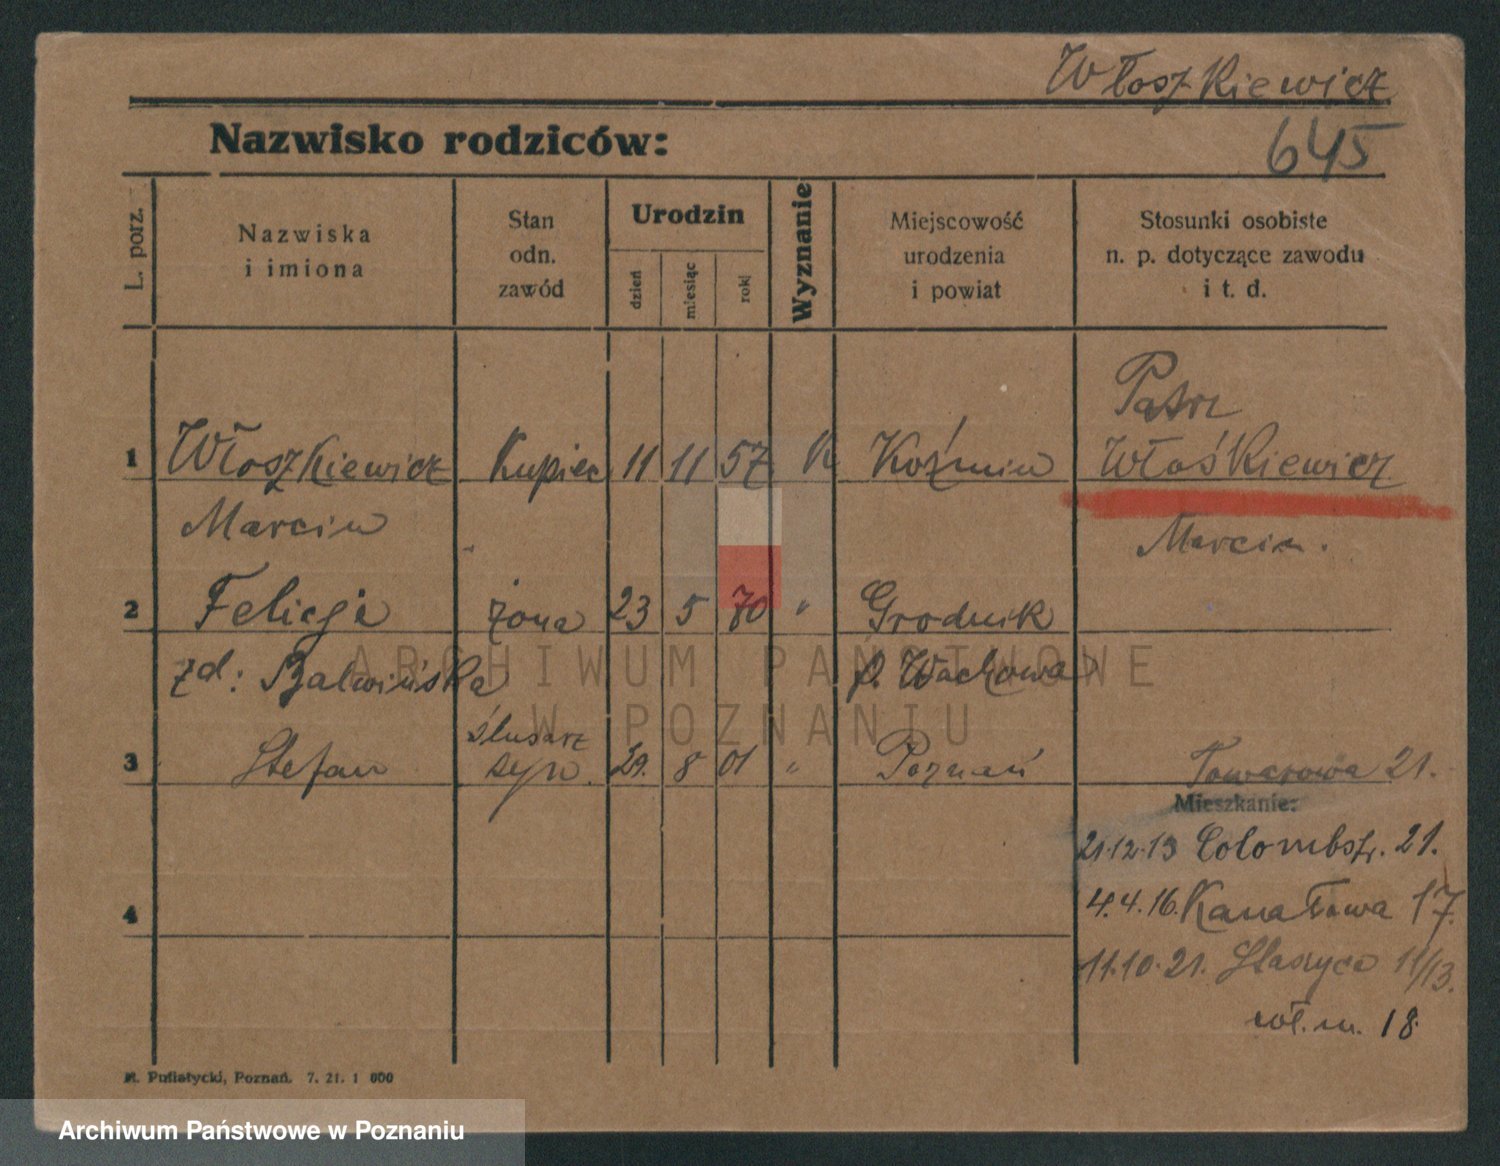 Włoszkiewicz
Nazwisko rodziców:
645
L. porz.
Nazwiska
i imiona
Stan
odn.
zawód
Urodzin
dzień
miesiąc
rok
Wyznanie
Miejscowość
urodzenia
i powiat
Stosunki osobiste
n. p. dotyczące zawodu
i t. d.
Patrz
1 Włoszkiewicz Kupiec 11 11 57 K Koźmin Włośkiewicz
Marcin Marcin.
2 Felicja żona 23 5 70 " Grodnik
zd: Balwińska p. Wschowa
ślusarz
3 Stefan syn. 29. 8 01 " Poznań Towarowa 21.
Mieszkanie:
21.12.13 Colombstr. 21.
4 4.4.16. Kanałowa 17.
11.10.21. Staszyca 11/13.
wł. m. 18
Pufiatycki, Poznań. 7. 21. 1 000
ARCHIWUM PAŃSTWOWE
W POZNANIU
Archiwum Państwowe w Poznaniu